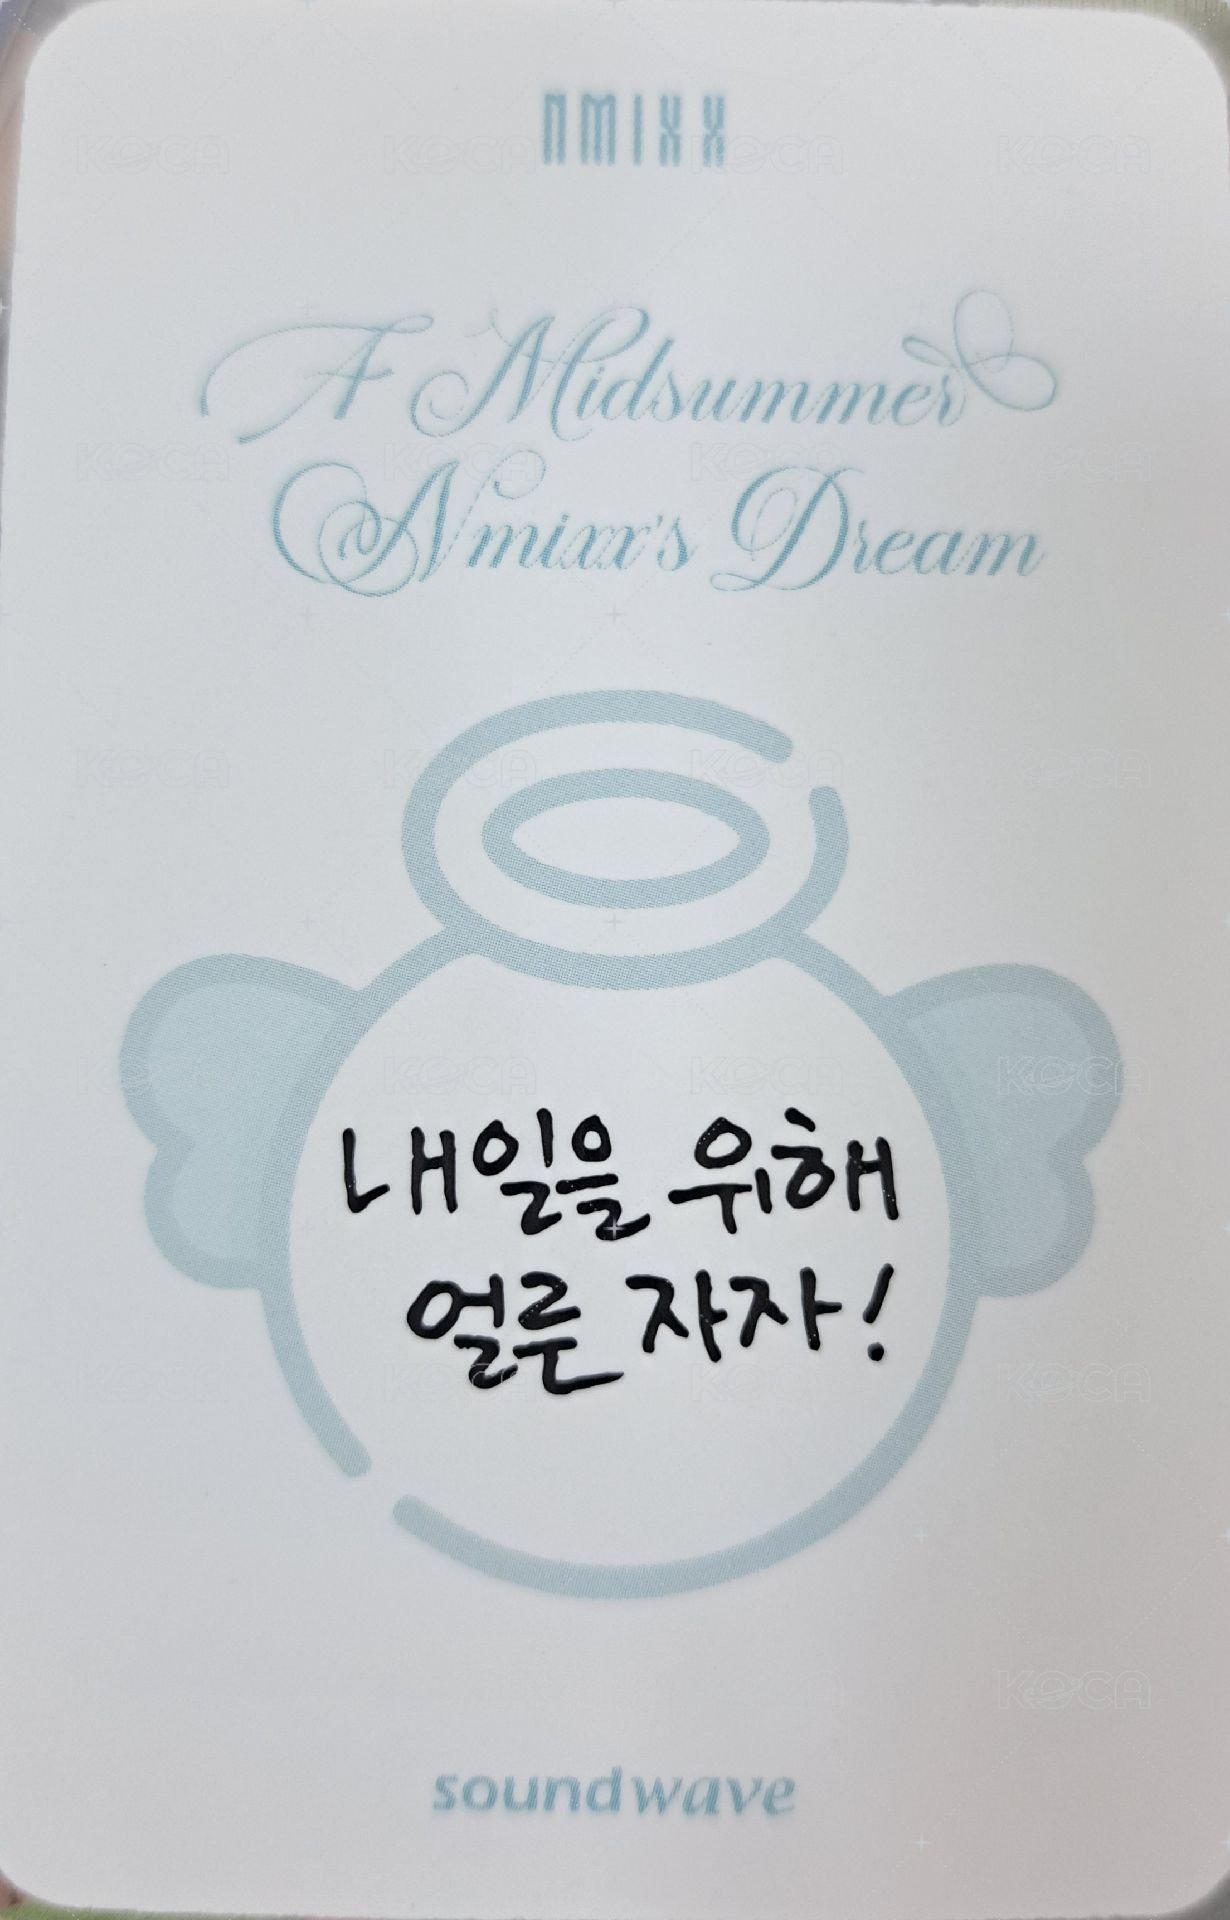 NMIXX
A Midsummer
Nmixx's Dream
내일을 위해
얼른 자자!
soundwave
KOCA